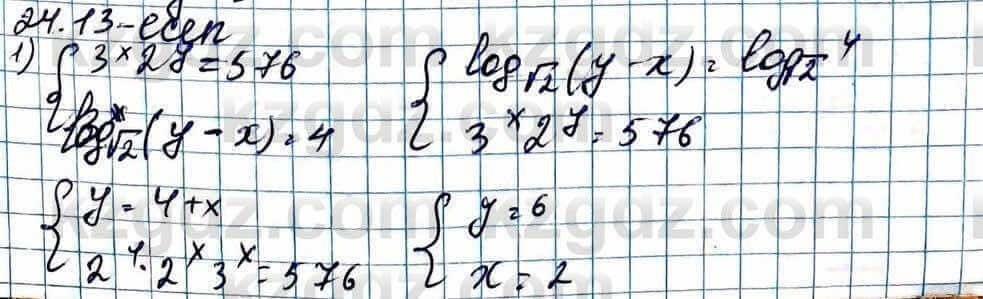 24.13-есеп
1) { 3ˣ2ʸ = 576
log√2(y - x) = 4
{ log√2(y - x) = log√2 4
3ˣ2ʸ = 576
{ y = 4 + x
2⁴ · 2ˣ 3ˣ = 576
{ y = 6
x = 2
kzgdz.com